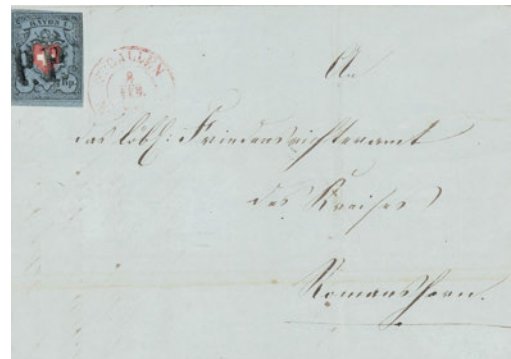 RAYON I
P.P.
5 Rp.
ST. GALLEN
8
FEB.
An
das lobl: Friedensrichteramt
des Kreises
Romanshorn.